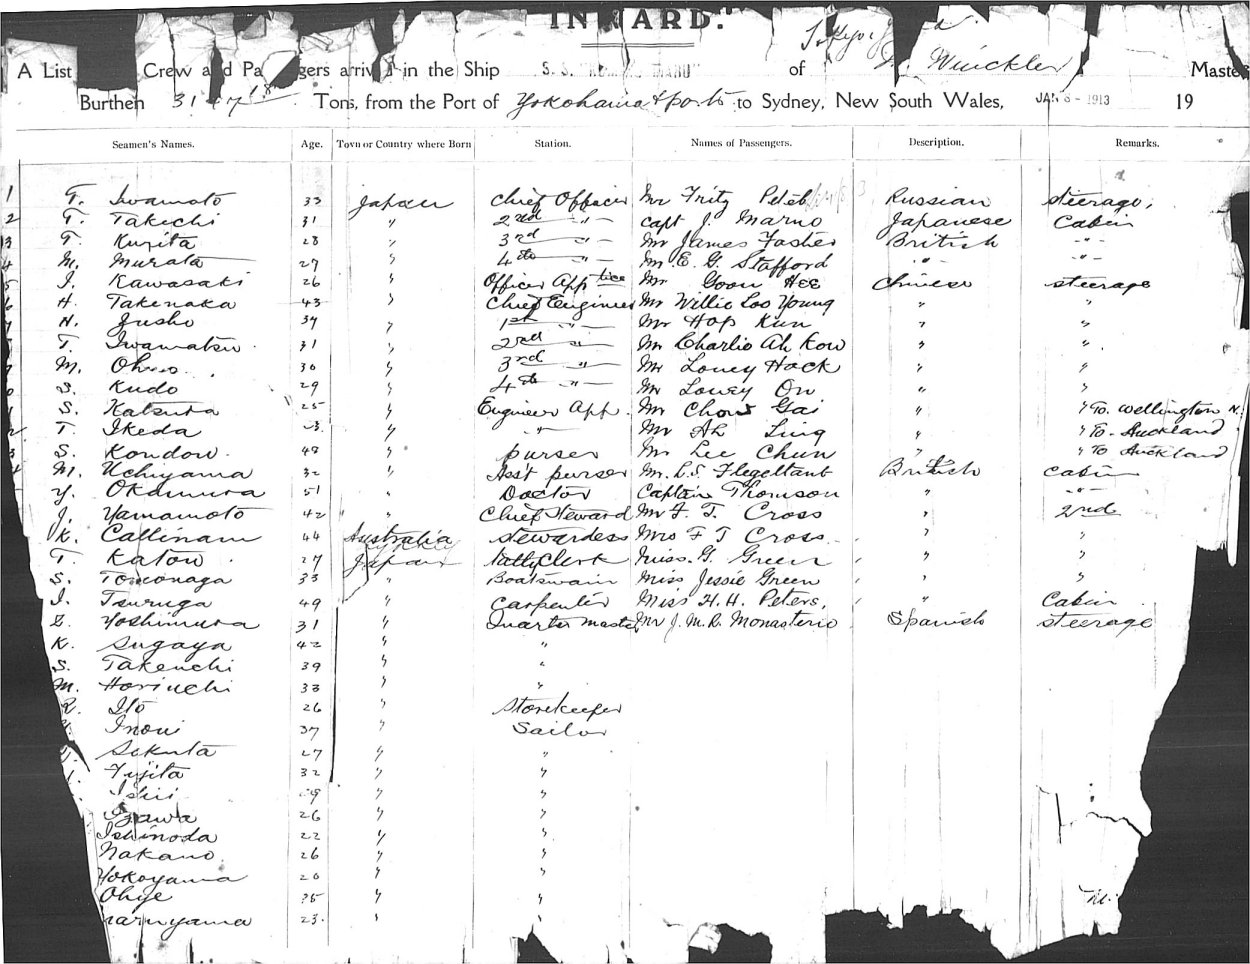 INWARD."
A List Crew and Passengers arrived in the Ship S. S. MARU" of Winckler Master
Burthen Tons, from the Port of Yokohama & ports to Sydney, New South Wales, JAN 8 - 1913 19
Seamen's Names. Age. Town or Country where Born Station. Names of Passengers. Description. Remarks.
1 T. Iwamoto 33 Japan Chief Officer Mr Fritz Russian steerage,
2 T. Takichi 31 " 2nd " Capt J. Maruo Japanese Cabin
3 T. Kurita 28 " 3rd " Mr James Foster British "
4 M. Murata 27 " 4th " Mr E. G. Stafford " "
5 J. Kawasaki 26 " Officer Apptice Mr Goon Hee Chinese steerage
H. Takenaka 43 " Chief Engineer Mr Willie Loo Young " "
H. " 1st " Mr Hop Kun " "
T. Iwamatsu 31 " 2nd " Mr Charlie Ah Kow " "
M. Ohno 30 " 3rd " Mr Louey Hock " "
S. Kudo 29 " 4th " Mr Louey On " "
S. Katsuta 25 " Engineer App. Mr Chow Gai " " To. Wellington N.
T. Ikeda " " Mr Ah Ling " " To. Auckland
S. Kondow 48 " purser Mr Lee Chun " " To Auckland
M. Uchiyama 32 " Ass't purser Mr. L. S. Flegeltaut British cabin
Y. Okamura 51 " Doctor Captain Thomson " "
J. Yamamoto 42 " Chief Steward Mr F. T. Cross " 2nd
K. Callinam 44 Australia stewardess Mrs F T Cross " "
T. Katow 27 Japan tallyClerk Miss. G. Green " "
S. Tomonaga 33 " Boatswain Miss Jessie Green " "
I. Tsuruga 49 " carpenter Miss H. H. Peters, " Cabin
G. Yoshimura 31 " Quarter master Mr J. M. R. Monasterio Spanish steerage
K. Sugaya 42 " "
S. Takeuchi 39 " "
M. Horiuchi 33 " "
R. Ito 26 " Storekeeper
Inoui 37 " Sailor
Sakuta 27 " "
Fujita 32 " "
Ishii " "
Ozawa 26 " "
Ishinoda 22 " "
Nakano 26 " "
Yokoyama 20 " "
Ohye 35 " "
Maruyama 23. " "